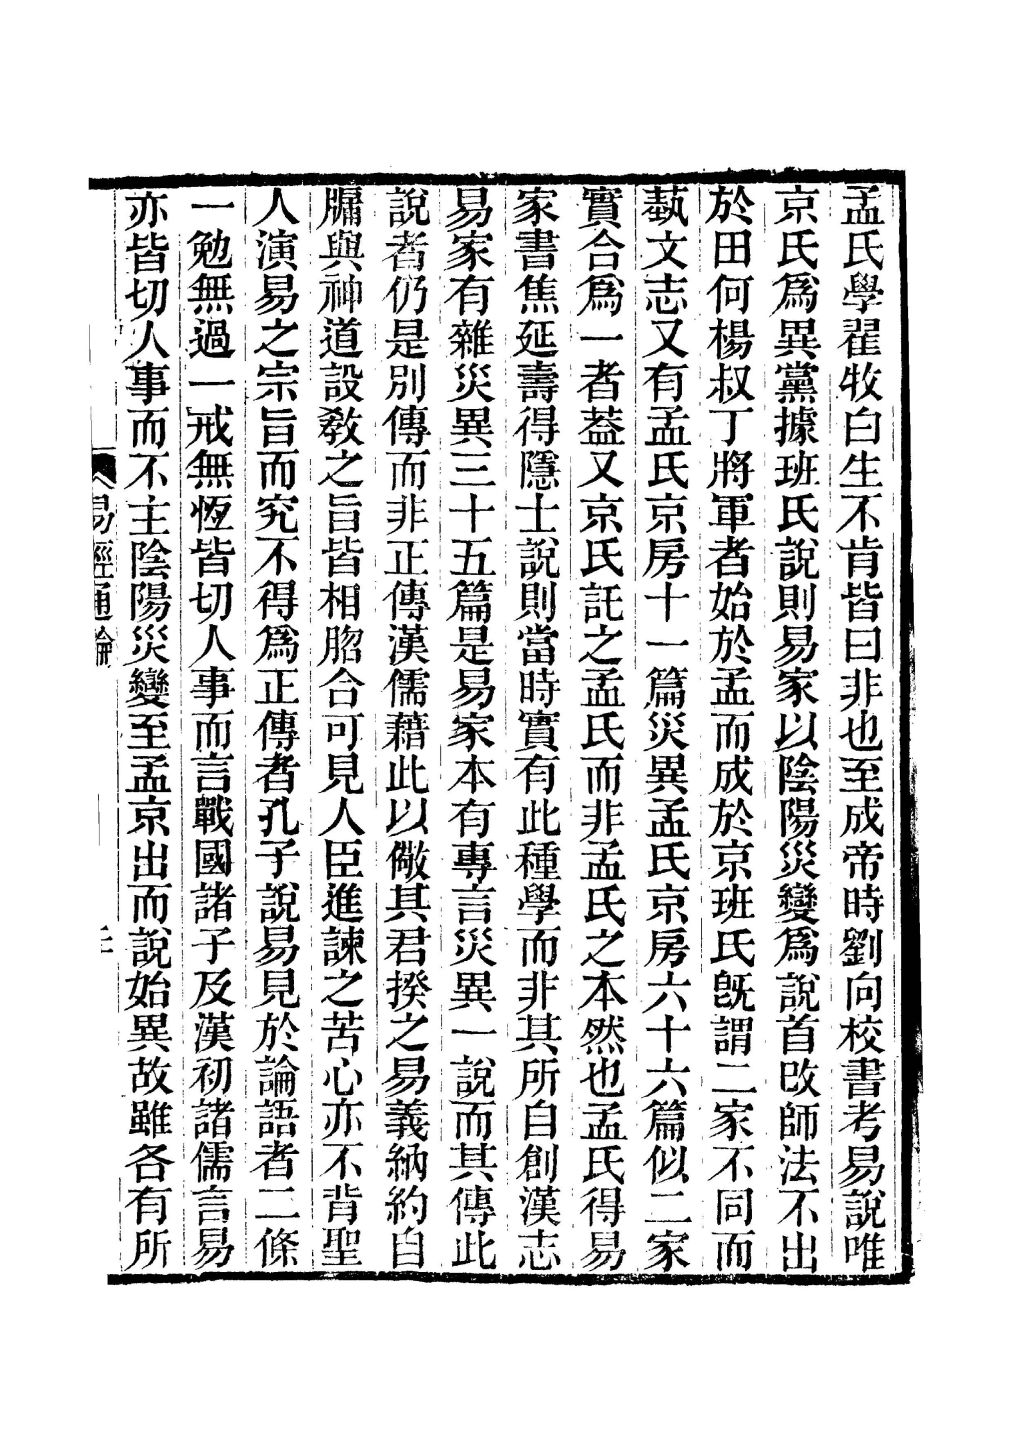 孟氏學翟牧白生不肯皆曰非也至成帝時劉向校書考易說唯
京氏爲異黨據班氏說則易家以陰陽災變爲說首改師法不出
於田何楊叔丁將軍者始於孟而成於京班氏旣謂二家不同而
蓺文志又有孟氏京房十一篇災異孟氏京房六十六篇似二家
實合爲一者蓋又京氏託之孟氏而非孟氏之本然也孟氏得易
家書焦延壽得隱士說則當時實有此種學而非其所自創漢志
易家有雜災異三十五篇是易家本有專言災異一說而其傳此
說者仍是別傳而非正傳漢儒藉此以儆其君揆之易義納約自
牖與神道設敎之旨皆相脗合可見人臣進諫之苦心亦不背聖
人演易之宗旨而究不得爲正傳者孔子說易見於論語者二條
一勉無過一戒無恆皆切人事而言戰國諸子及漢初諸儒言易
亦皆切人事而不主陰陽災變至孟京出而說始異故雖各有所
易經通論